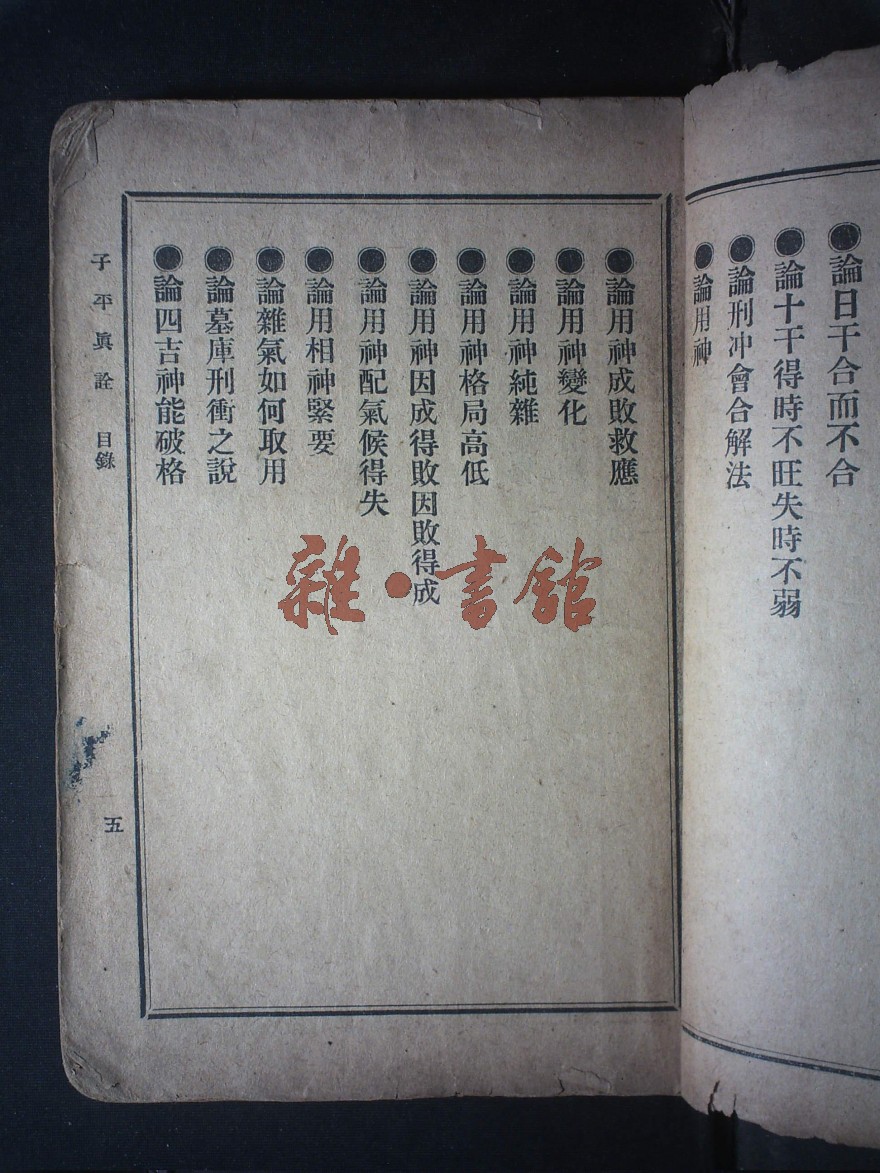 ●論日干合而不合
●論十干得時不旺失時不弱
●論刑冲會合解法
●論用神
●論用神成敗救應
●論用神變化
●論用神純雜
●論用神格局高低
●論用神因成得敗因敗得成
●論用神配氣候得失
●論用相神緊要
●論雜氣如何取用
●論墓庫刑衝之說
●論四吉神能破格
子平眞詮 目錄
五
雜·書館